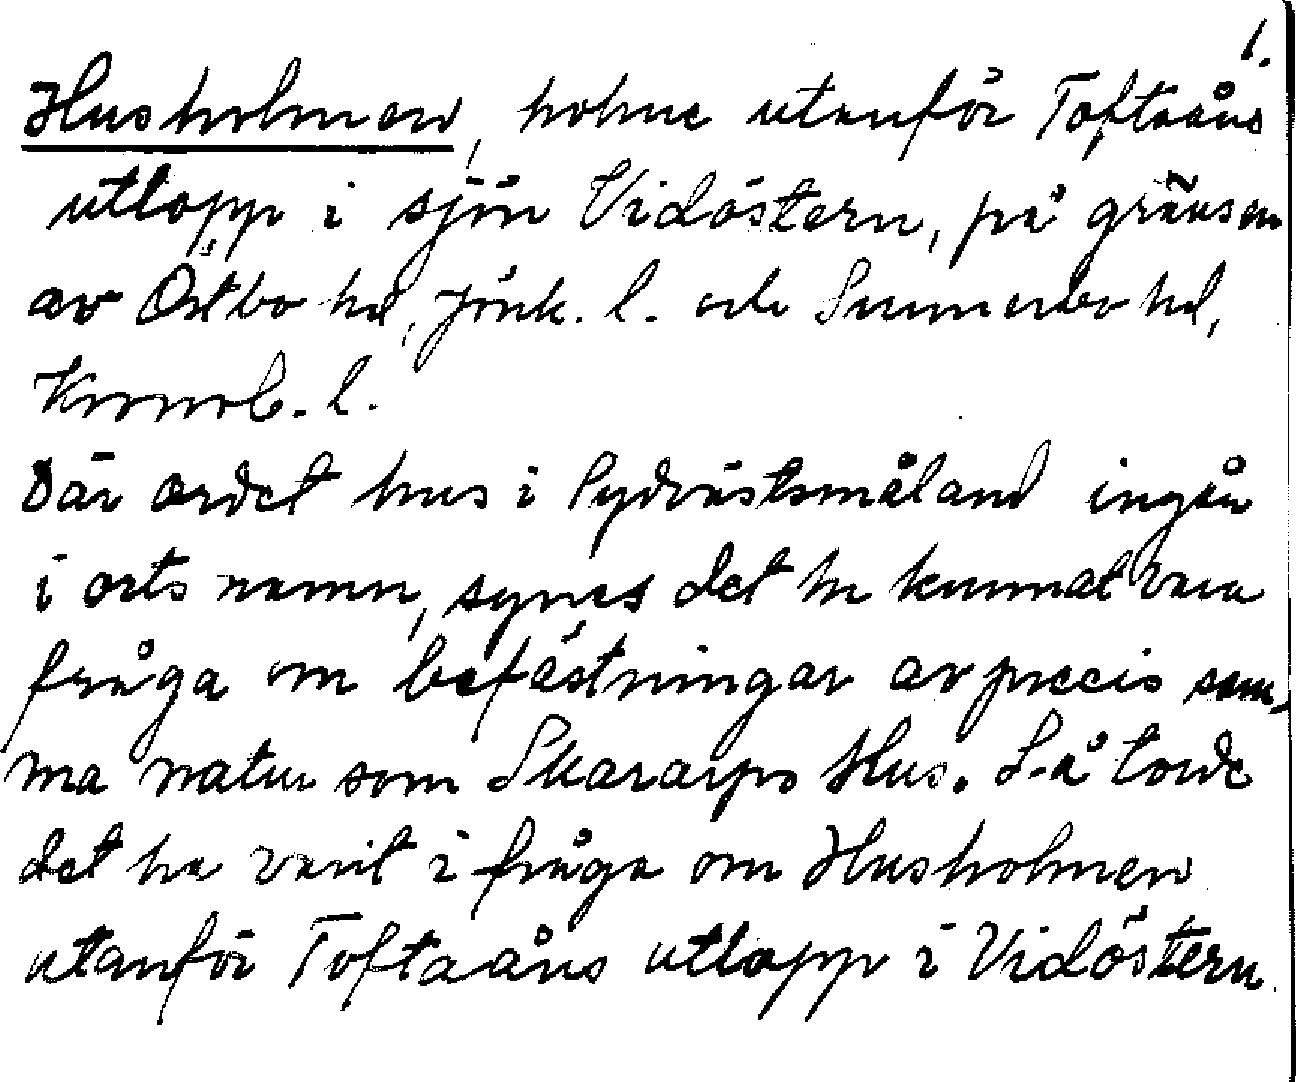 1.
Husholmen, holme utanför Toftaåns
utlopp i sjön Vidöstern, på gränsen
av Östbo hd, Jönk. l. och Sunnerbo hd,
Kronob. l.
Där ordet hus i Sydvästsmåland ingår
i ortsnamn, synes det ha kunnat vara
fråga om befästningar av precis sam-
ma natur som Skararps Hus. Så torde
det ha varit i fråga om Husholmen
utanför Toftaåns utlopp i Vidöstern.